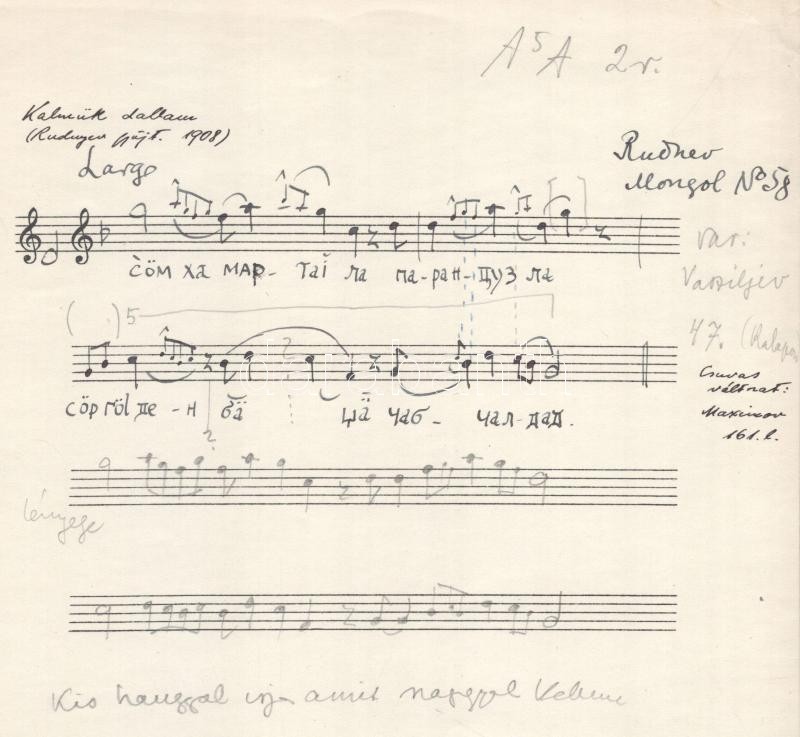 A⁵A 2r.
Kalmük dallam
(Rudnyev gyüjt. 1908)
Largo
Rudnev
Mongol No 58
сöм ха мар- таi ла па-ран-цуз ла
var:
Vasziljev
47.
( )5
darabanth
Csuvas
változat:
Maximov
161.l.
сöр гöl де-н бä шä чаб- чал-дад.
?
?
lényege
Kis hanggal írja amit nagygyal kellene